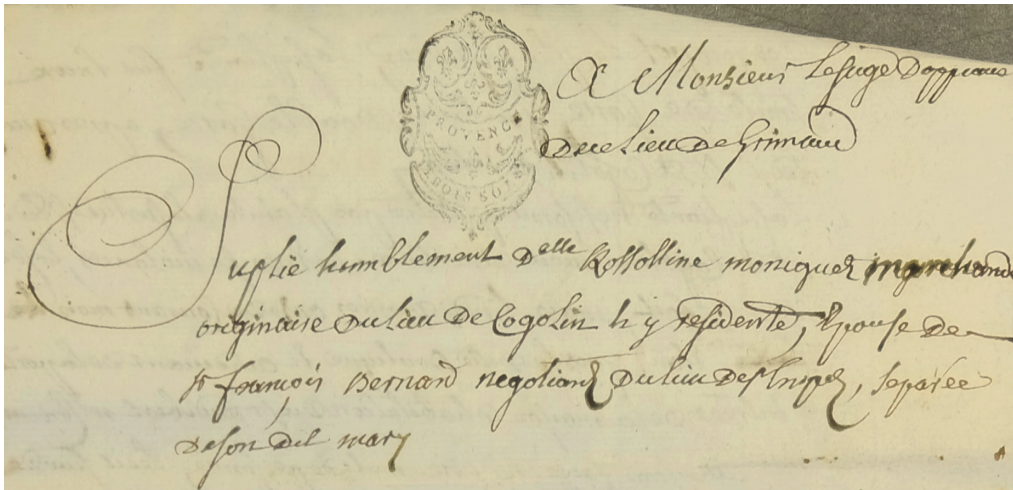 PROVENCE
TROIS SOLS
A Monsieur Lesuge Dappeaux
De ce Lieu De Grimaud
Suplie humblement Dalle Rossolline moniquez marchande
originaire Du lieu De Cogolin h y residente, Epouse De
sr françois Bernard negotiant Du lieu De st tropez, separée
De son Dit mary